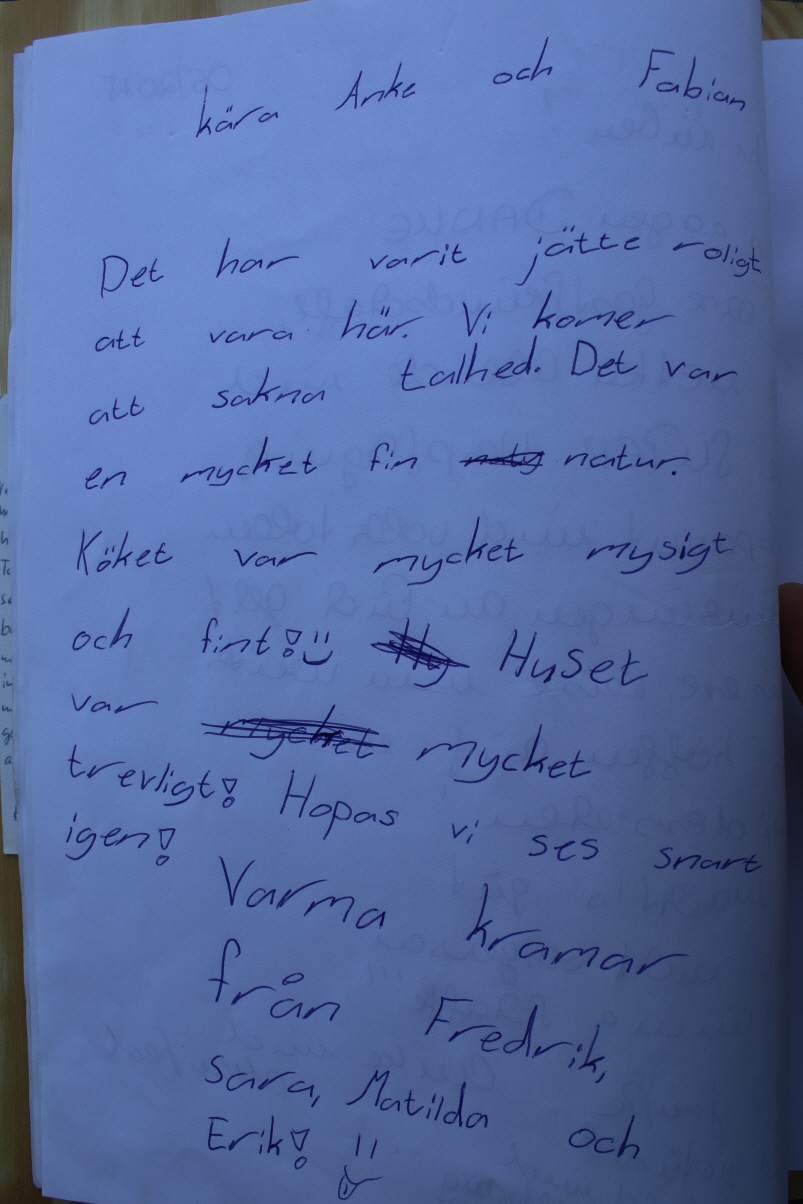 kära Anke och Fabian
Det har varit jätte roligt
att vara här. Vi komer
att sakna talhed. Det var
en mycket fin natur.
Köket var mycket mysigt
och fint! Huset
var mycket mycket
trevligt! Hopas vi ses snart
igen!
Varma kramar
från Fredrik,
sara, Matilda och
Erik!